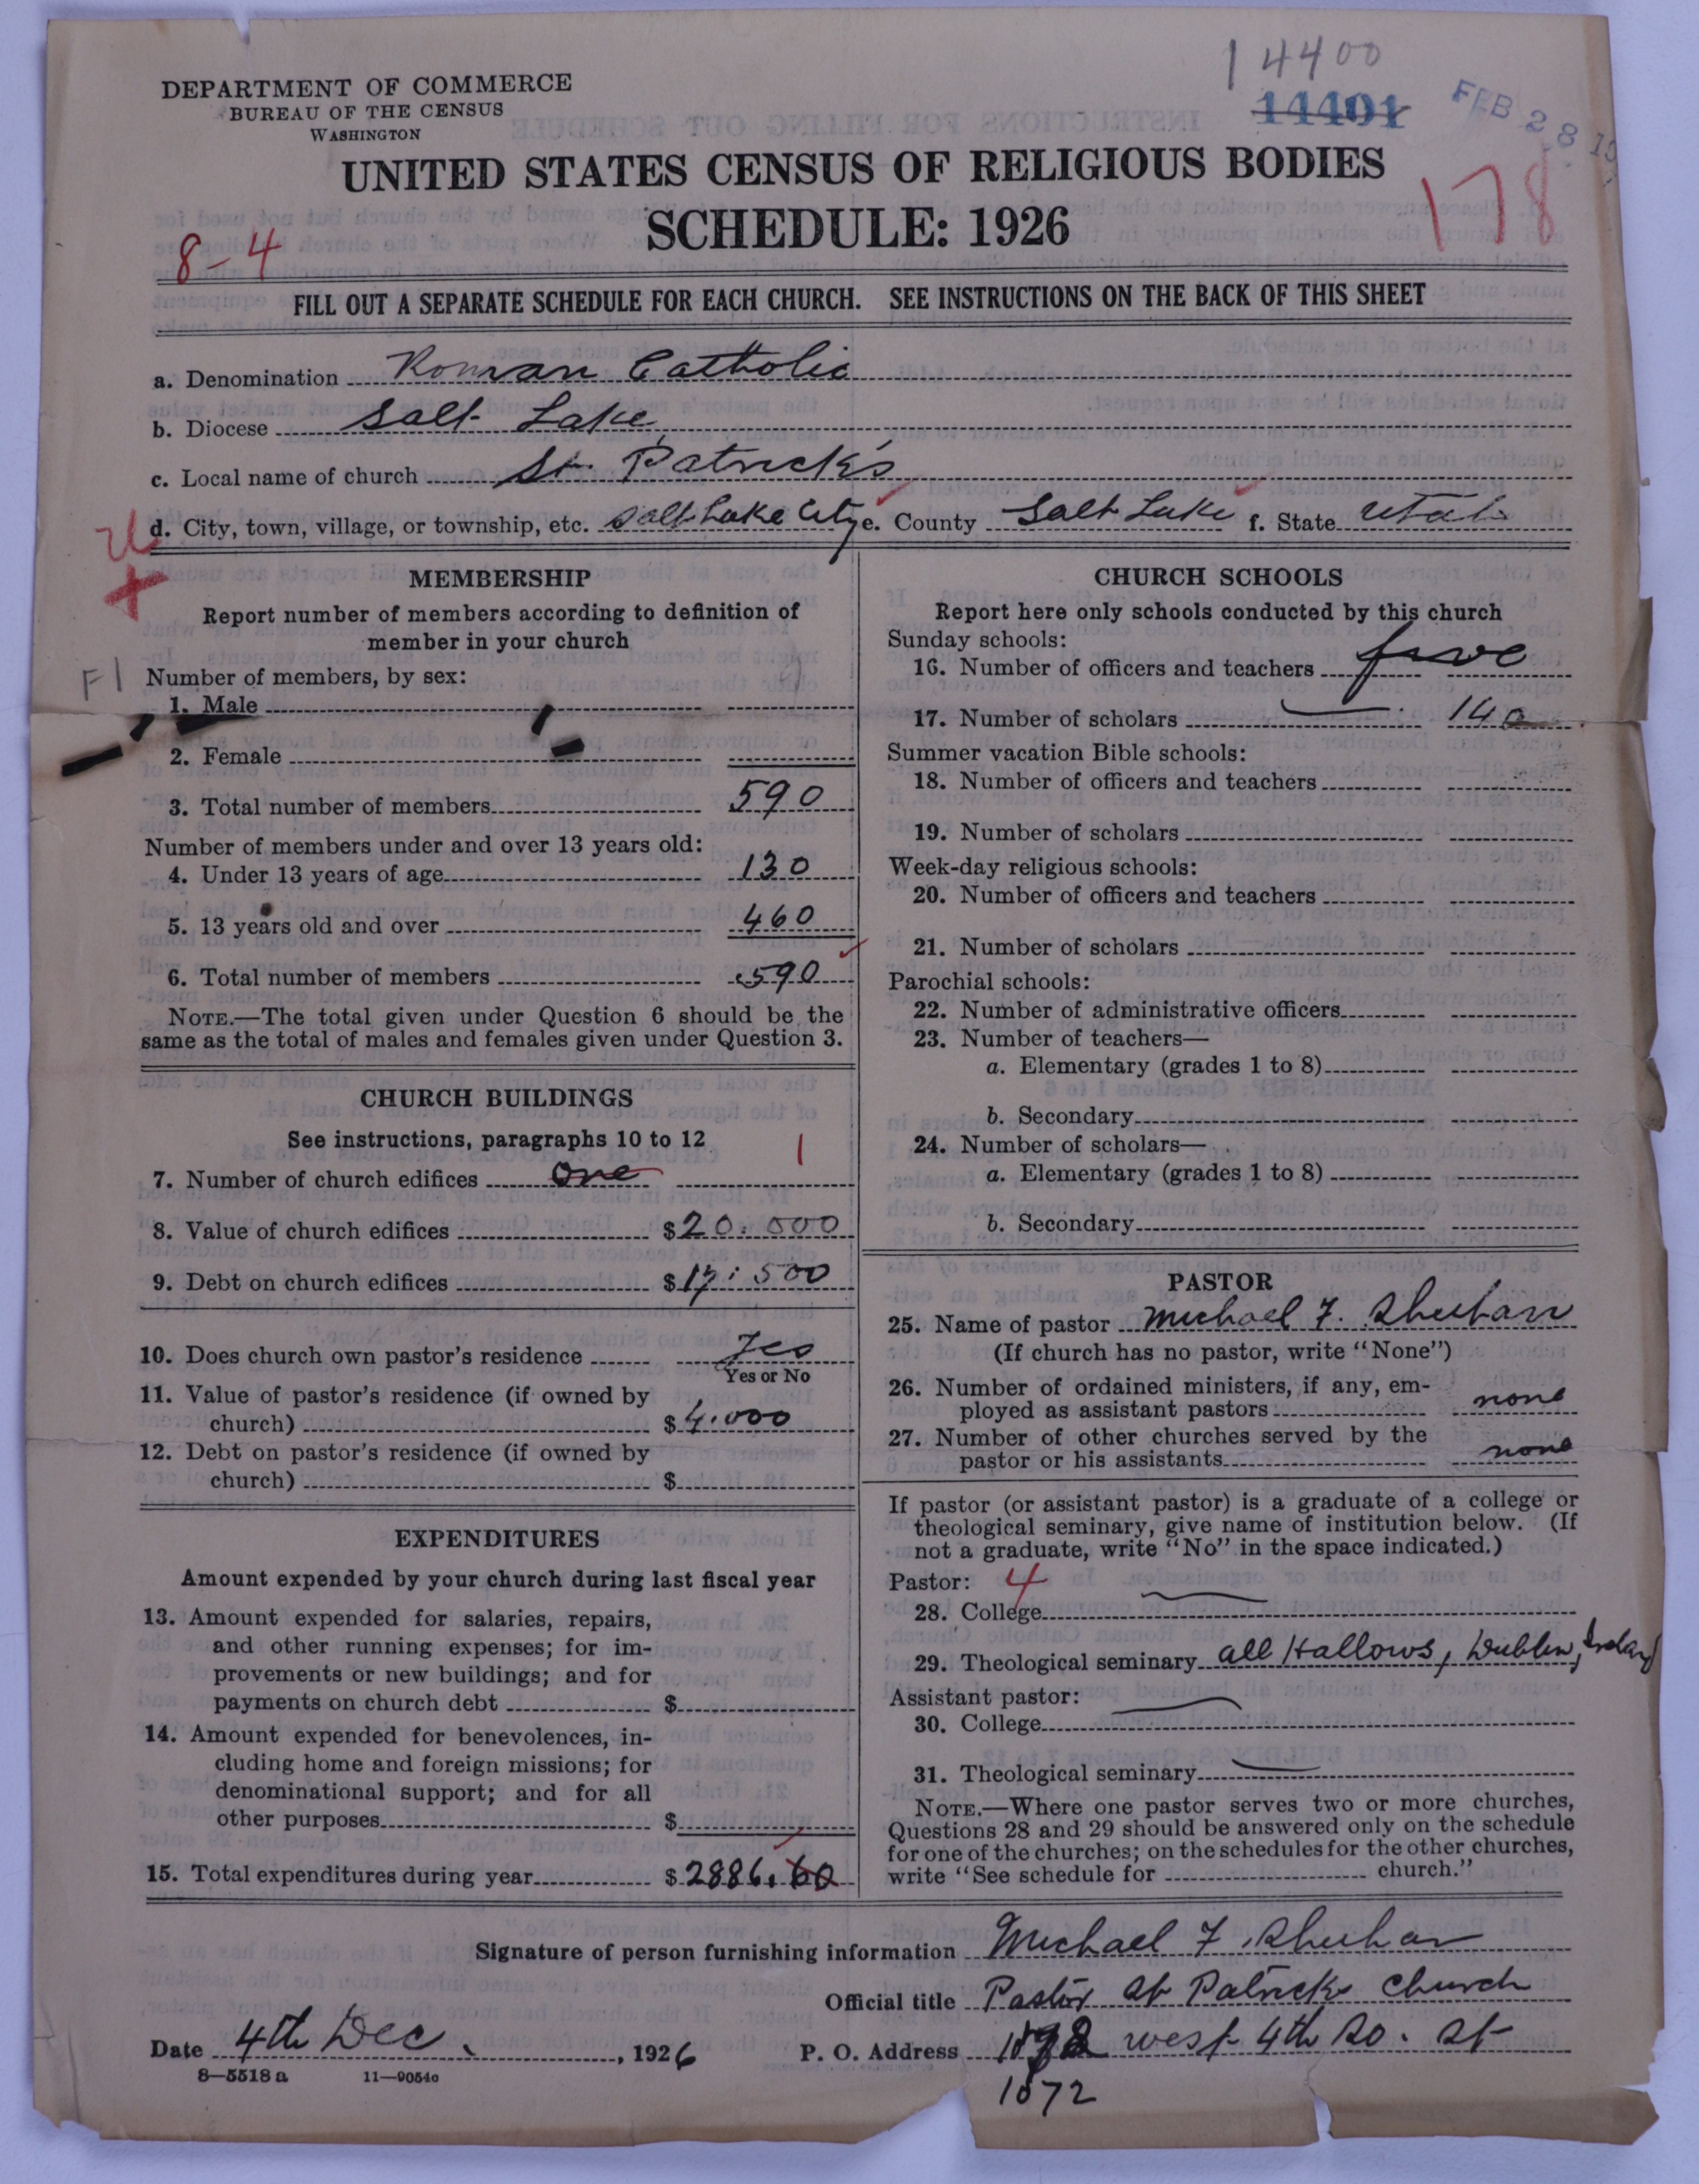 14400
DEPARTMENT OF COMMERCE
BUREAU OF THE CENSUS
WASHINGTON
14401
FEB 28
UNITED STATES CENSUS OF RELIGIOUS BODIES
SCHEDULE: 1926
178
8-4
FILL OUT A SEPARATE SCHEDULE FOR EACH CHURCH. SEE INSTRUCTIONS ON THE BACK OF THIS SHEET
a. Denomination Roman Catholic
b. Diocese Salt Lake
c. Local name of church St. Patrick's
d. City, town, village, or township, etc. Salt Lake City e. County Salt Lake f. State Utah
MEMBERSHIP
Report number of members according to definition of
member in your church
F1
Number of members, by sex:
1. Male
2. Female
3. Total number of members 590
Number of members under and over 13 years old:
4. Under 13 years of age 130
5. 13 years old and over 460
6. Total number of members 590
NOTE.—The total given under Question 6 should be the
same as the total of males and females given under Question 3.
CHURCH BUILDINGS
See instructions, paragraphs 10 to 12
7. Number of church edifices one 1
8. Value of church edifices $20.000
9. Debt on church edifices $17.500
10. Does church own pastor's residence Yes
Yes or No
11. Value of pastor's residence (if owned by
church) $4.000
12. Debt on pastor's residence (if owned by
church) $
EXPENDITURES
Amount expended by your church during last fiscal year
13. Amount expended for salaries, repairs,
and other running expenses; for im-
provements or new buildings; and for
payments on church debt $
14. Amount expended for benevolences, in-
cluding home and foreign missions; for
denominational support; and for all
other purposes $
15. Total expenditures during year $2886.60
CHURCH SCHOOLS
Report here only schools conducted by this church
Sunday schools:
16. Number of officers and teachers five
17. Number of scholars 140
Summer vacation Bible schools:
18. Number of officers and teachers
19. Number of scholars
Week-day religious schools:
20. Number of officers and teachers
21. Number of scholars
Parochial schools:
22. Number of administrative officers
23. Number of teachers—
a. Elementary (grades 1 to 8)
b. Secondary
24. Number of scholars—
a. Elementary (grades 1 to 8)
b. Secondary
PASTOR
25. Name of pastor Michael F. Sheehan
(If church has no pastor, write "None")
26. Number of ordained ministers, if any, em-
ployed as assistant pastors none
27. Number of other churches served by the
pastor or his assistants none
If pastor (or assistant pastor) is a graduate of a college or
theological seminary, give name of institution below. (If
not a graduate, write "No" in the space indicated.)
Pastor: 4
28. College
29. Theological seminary All Hallows, Dublin, Ireland
Assistant pastor:
30. College
31. Theological seminary
NOTE.—Where one pastor serves two or more churches,
Questions 28 and 29 should be answered only on the schedule
for one of the churches; on the schedules for the other churches,
write "See schedule for church."
Signature of person furnishing information Michael F. Sheehan
Official title Pastor St Patricks Church
Date 4th Dec, 1926 P. O. Address west 4th So. St
1072
8—5518a 11—9054c